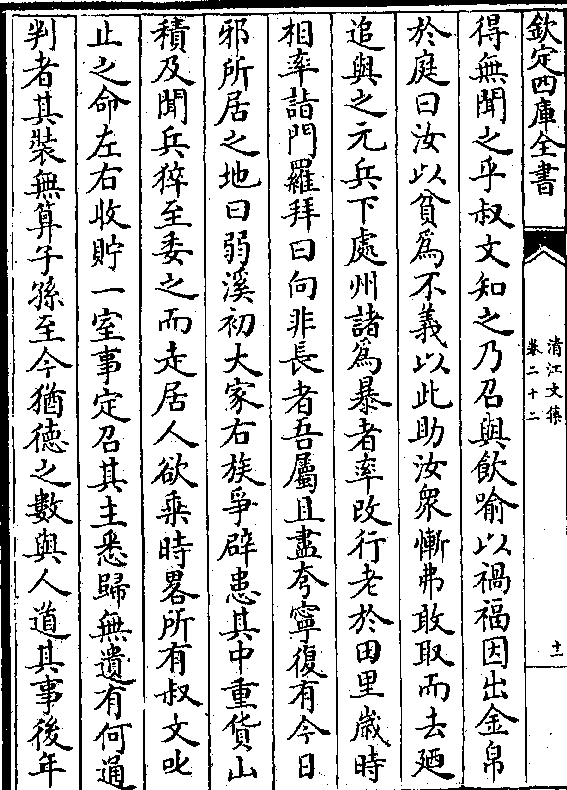 欽定四庫全書
清江文集
卷二十二
十一
得無聞之乎叔文知之乃召與飲喻以禍福因出金帛
於庭曰汝以貧為不義以此助汝衆慚弗敢取而去廼
追與之元兵下處州諸為暴者率改行老於田里嵗時
相率詣門羅拜曰向非長者吾屬且盡夸寧復有今日
邪所居之地曰弱溪初大家右族爭辟患其中重貨山
積及聞兵猝至委之而走居人欲乗時畧所有叔文叱
止之命左右收貯一室事定召其主悉歸無遺有何通
判者其裝無算子孫至今猶徳之數與人道其事後年